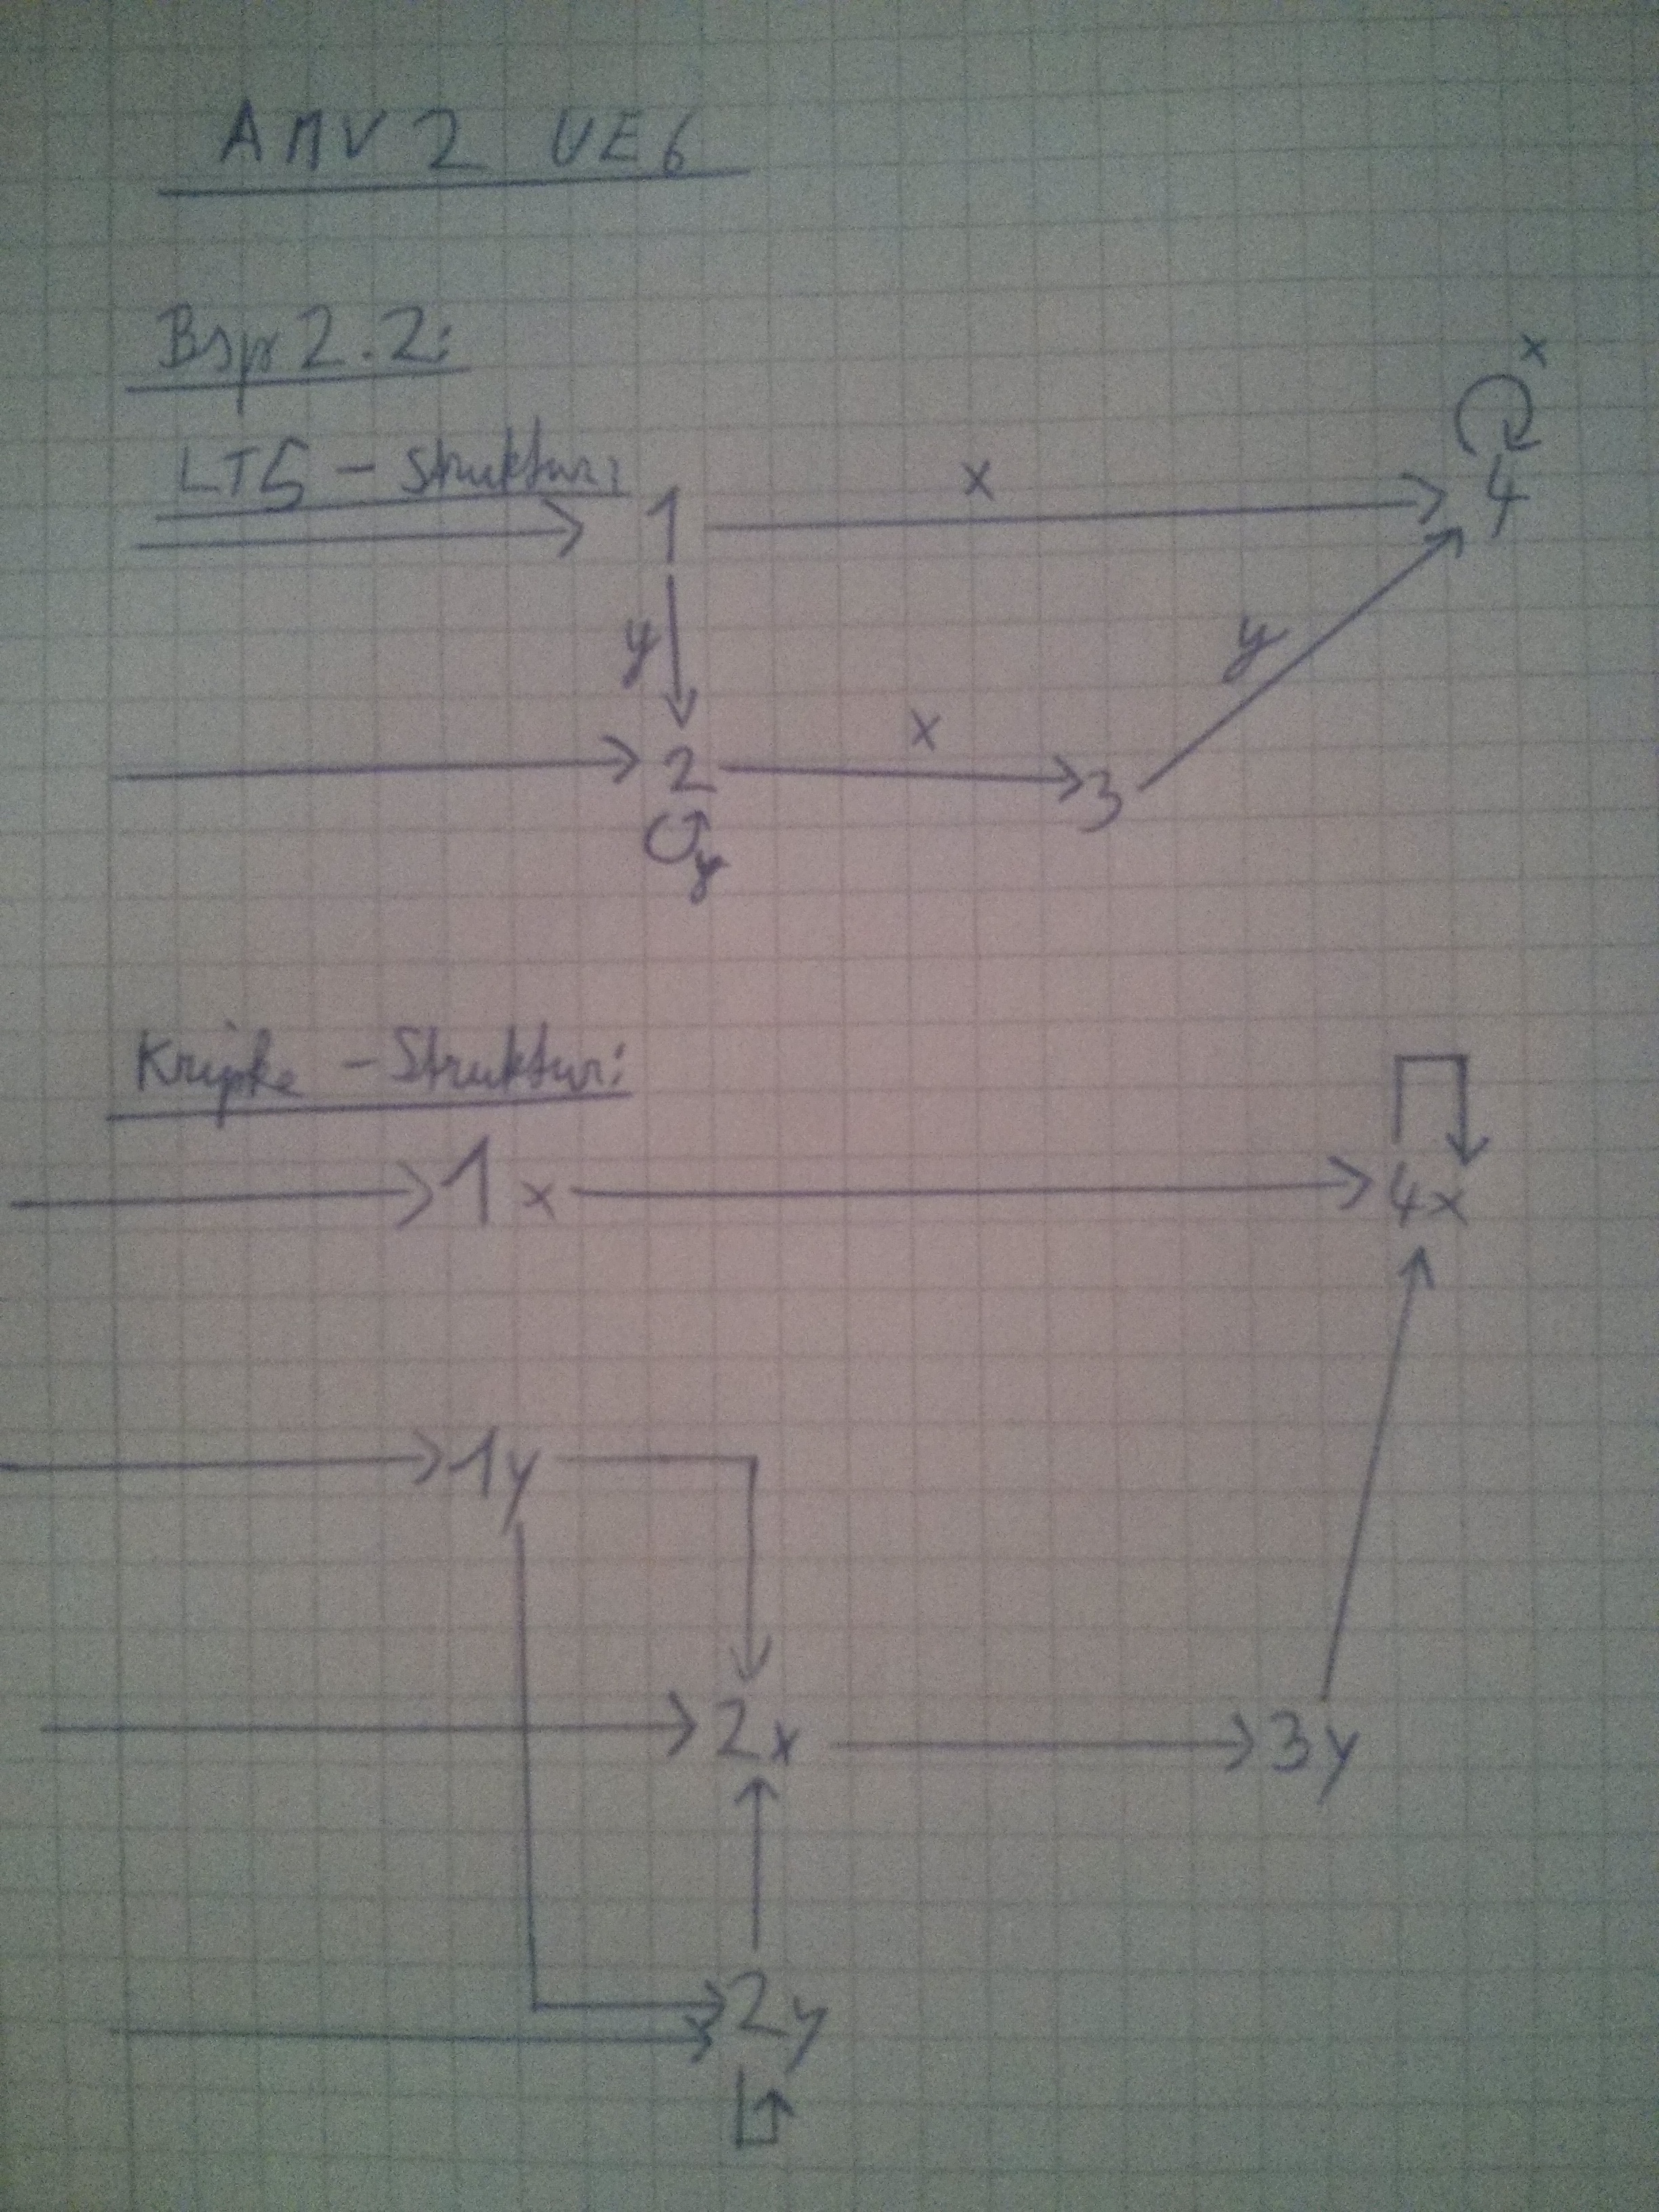 AMV 2 UE6
Bsp 2.2:
LTS - Struktur:
x
1 x 4
y y
2 x 3
y
Kripke - Struktur:
1x 4x
1y
2x 3y
2y